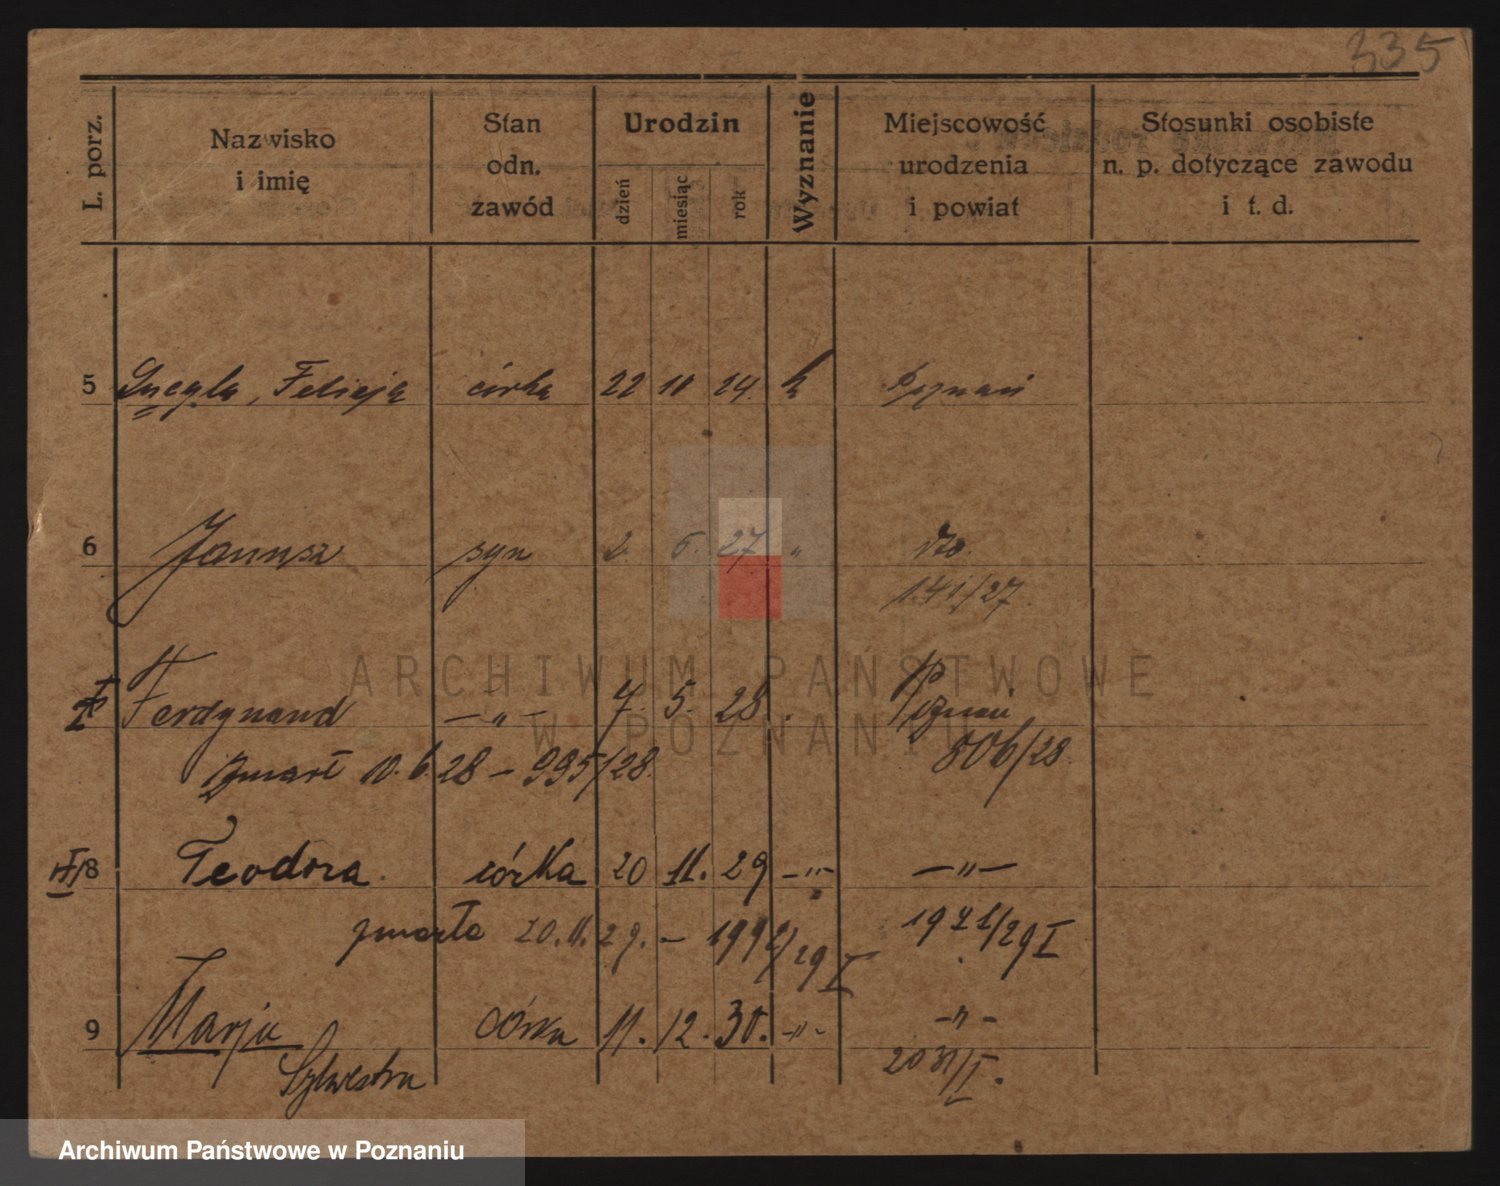 335
L. porz.
Nazwisko
i imię
Stan
odn.
zawód
Urodzin
dzień
miesiąc
rok
Wyznanie
Miejscowość
urodzenia
i powiat
Stosunki osobiste
n. p. dotyczące zawodu
i t. d.
5 Felicja córka 22 24. k Poznań
6 Janusz syn 2. 27 „ dto.
1141/27.
ARCHIWUM PAŃSTWOWE
W POZNANIU
Ferdynand — „ — 7. 5. 28 Poznań
806/28.
zmarł 10. 6. 28 – 995/28.
8 Teodora. córka 20 11. 29 – „ – — „ —
zmarła 20. 11. 29. – 199 /29 I
/29 I
9 Marja córka 11. 12. 30. – „ – – „ –
Sylwestra
Archiwum Państwowe w Poznaniu